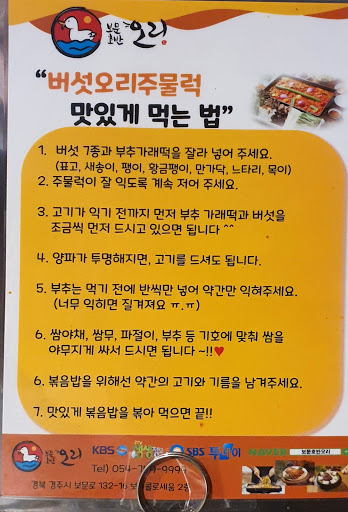 보문
호반
오리
“버섯오리주물럭
맛있게 먹는 법”
1. 버섯 7종과 부추가래떡을 잘라 넣어 주세요.
(표고, 새송이, 팽이, 황금팽이, 만가닥, 느타리, 목이)
2. 주물럭이 잘 익도록 계속 저어 주세요.
3. 고기가 익기 전까지 먼저 부추 가래떡과 버섯을
조금씩 먼저 드시고 있으면 됩니다 ^^
4. 양파가 투명해지면, 고기를 드셔도 됩니다.
5. 부추는 먹기 전에 반씩만 넣어 약간만 익혀주세요.
(너무 익히면 질겨져요 ㅠ.ㅠ)
6. 쌈야채, 쌈무, 파절이, 부추 등 기호에 맞춰 쌈을
야무지게 싸서 드시면 됩니다 ~!!♥
6. 볶음밥을 위해선 약간의 고기와 기름을 남겨주세요.
7. 맛있게 볶음밥을 볶아 먹으면 끝!!
보문
호반
오리
KBS
SBS
NAVER
보문호반오리
Tel) 054-
경북 경주시 보문로 132-16
2층